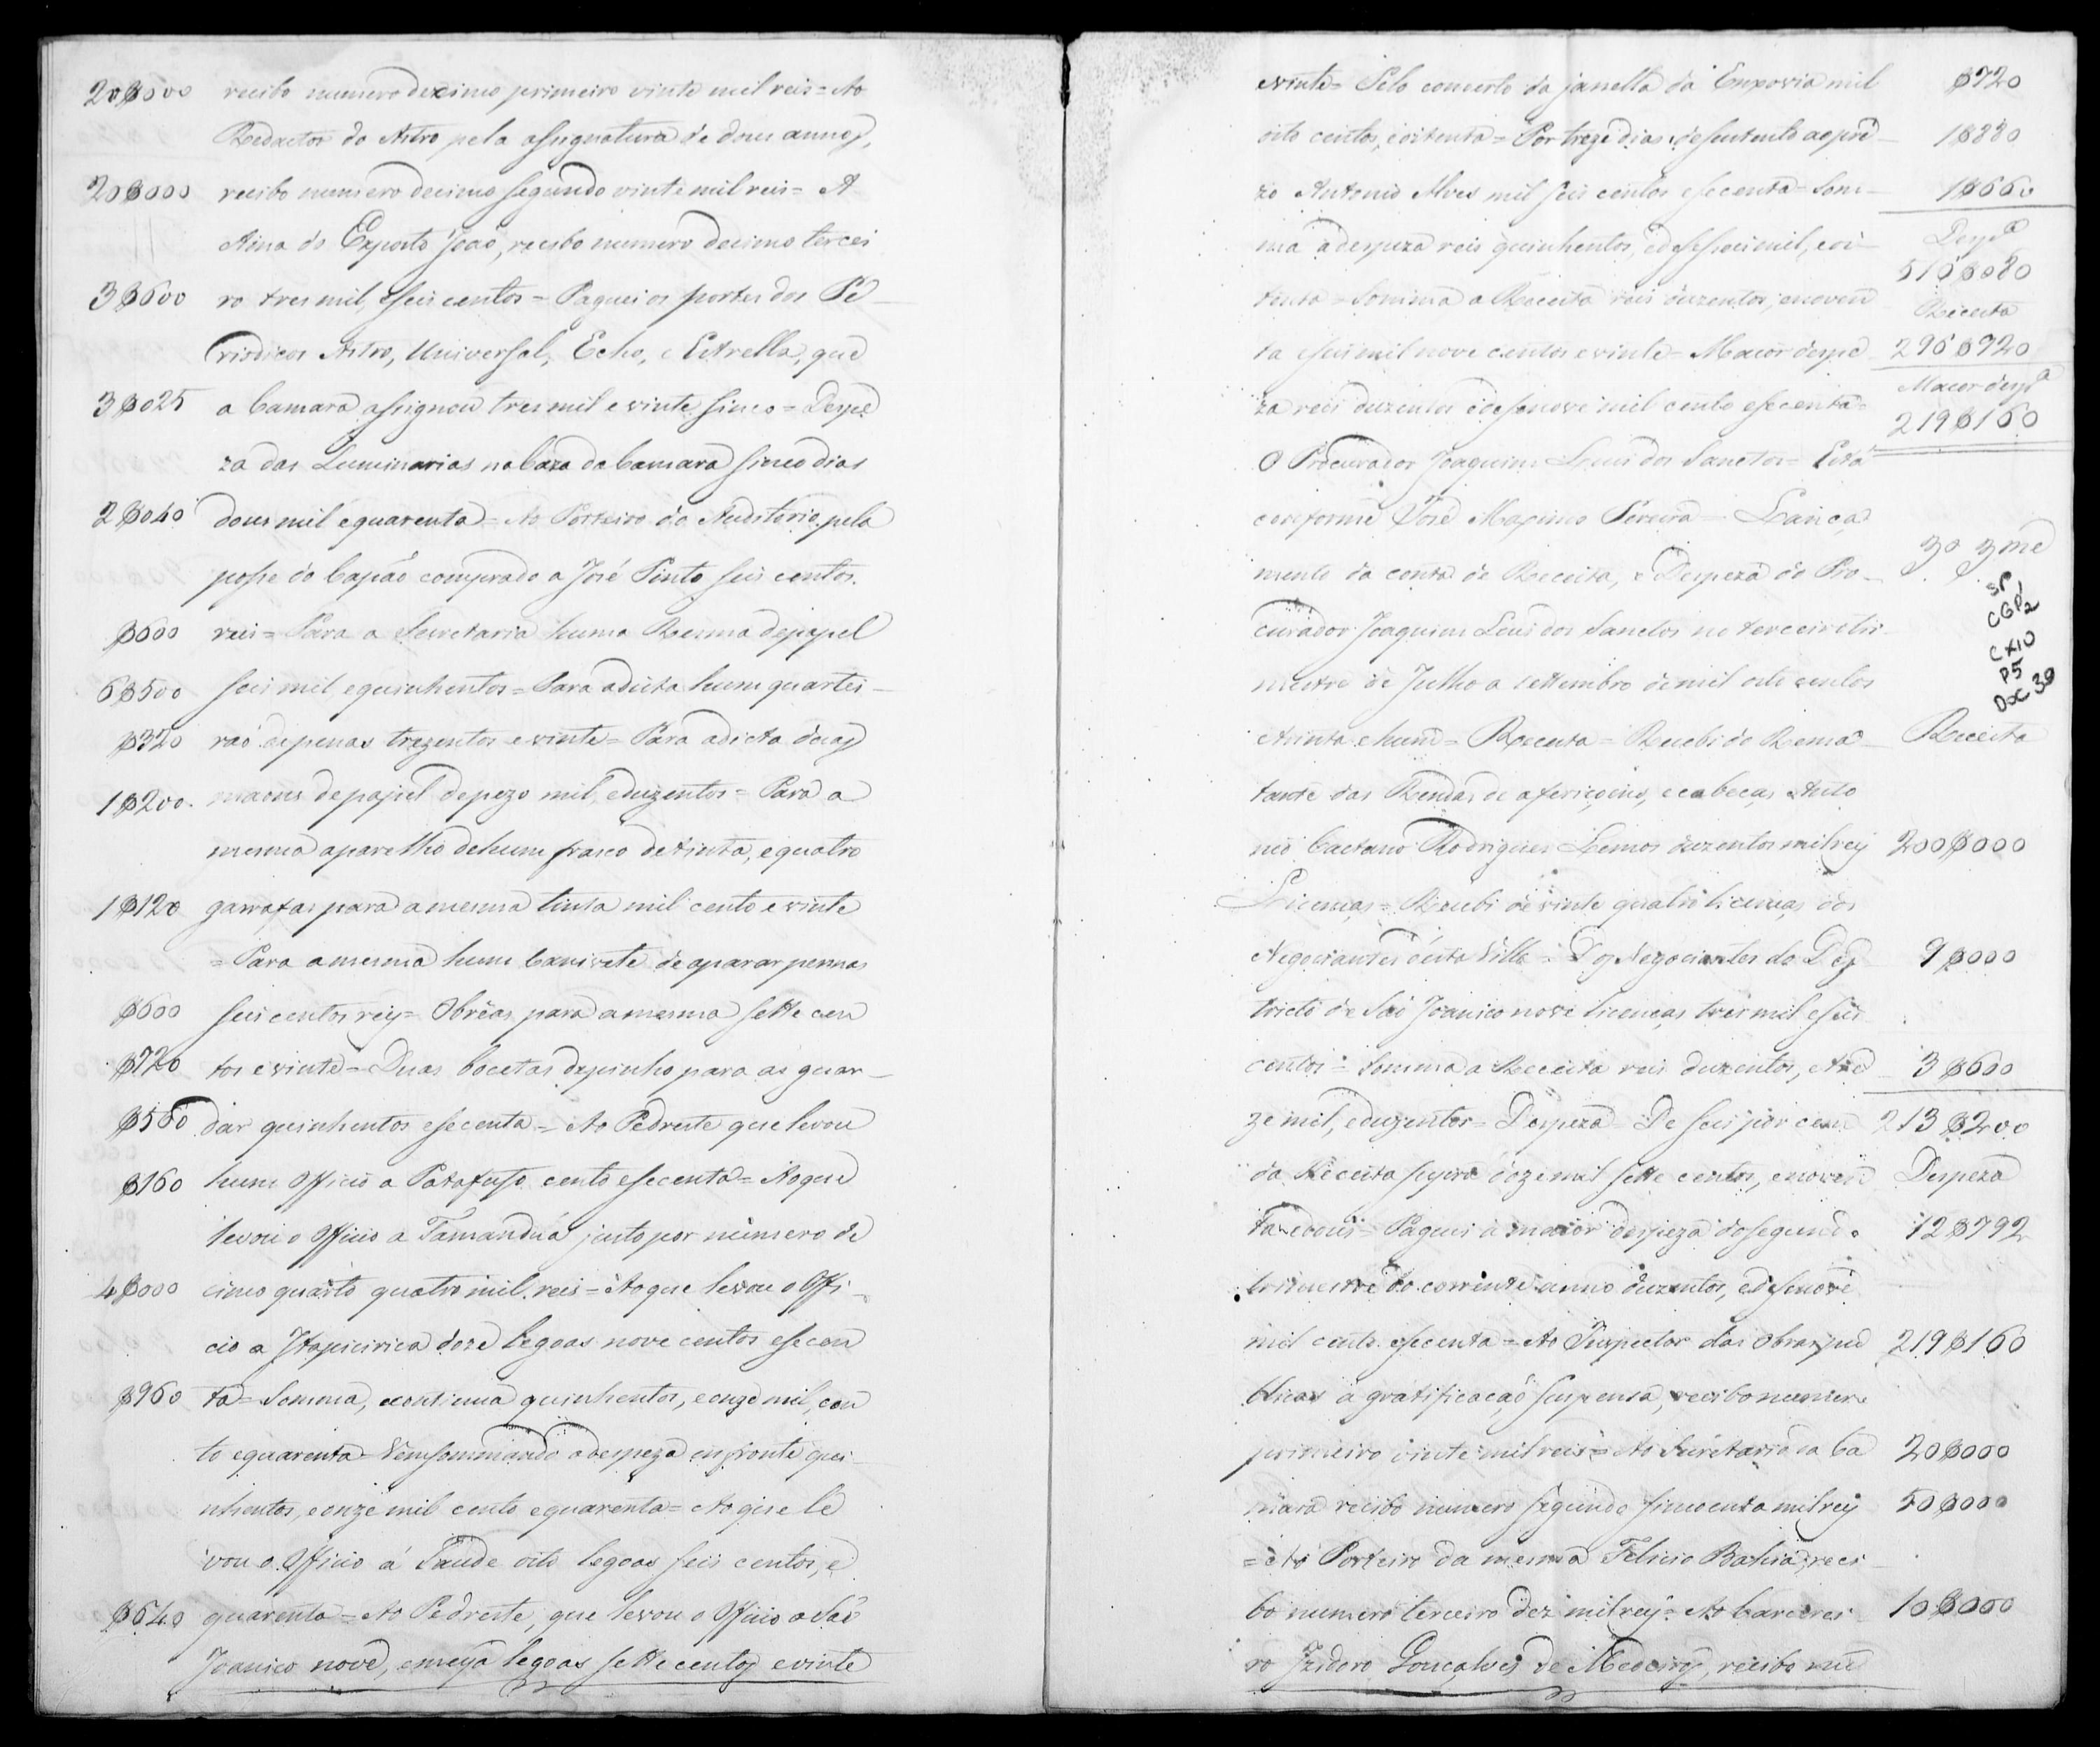 20$000 recibo numero decimo primeiro vinte mil reis = Ao
Redactor do Astro pela assignatura de dous annos,
20$000 recibo numero decimo segundo vinte mil reis = A
Ama do Exposto João, recibo numero decimo tercei
3$600 ro tres mil, e seis centos = Paguei os portes dos Pe
riodicos Astro, Universal, Echo, e Estrella, que
3$025 a Camara assignou tres mil e vinte sinco = Despe
za das Luminarias na Caza da Camara sinco dias
2$040 dous mil e quarenta = Ao Porteiro do Auditorio pela
posse do Capão comprado a José Pinto seis centos.
$600 reis = Para a Secretaria huma Resma de papel
6$500 seis mil e quinhentos = Para a dicta hum quartei
$320 raõ de penas trezentos e vinte = Para a dicta duas
1$200. maons de papel de pezo mil, e duzentos = Para a
mesma aparelho de hum frasco de tinta, e quatro
1$120 garrafas para a mesma tinta mil cento e vinte
= Para a mesma hum Canivete de aparar pennas
$600 seis centos reis = Obrêas para a mesma sette cen
$720 tos e vinte = Duas bocetas de pinho para as guar
$560 dar quinhentos e secenta = Ao Pedreste que levou
$160 hum Officio a Patafufo cento e secenta = Ao que
levou o Officio a Tamanduá justo por numero de
4$000 cinco quarto quatro mil reis = Ao que levou o Offi
cio a Itapicirica doze legoas nove centos e secen
$960 ta = Somma, e continua quinhentos, e onze mil, cen
to e quarenta = Vem sommando a despeza em fronte qui
nhentos, e onze mil cento e quarenta = Ao que le
vou o Officio á Saude oito legoas seis centos, e
$640 quarenta = Ao Pedreste, que levou o Officio a São
Joanico nove, e meya legoas sette centos e vinte
evinte = Pelo concerto da janella da Enxovia mil $720
oito centos, e oitenta = Por treze dias de sustento ao pre 1$880
zo Antonio Alves mil seis centos e secenta = Som 1$660
ma a despeza reis quinhentos, e desesseis mil, e oi Despª
516$080
tenta = Somma a Receita reis duzentos, e noven Receita
ta e seis mil nove centos e vinte = Maior despe 296$920
Maior despª
za reis duzentos e desanove mil cento e secenta = 219$160
O Procurador Joaquim Luis dos Sanctos = Está
conforme José Maximo Pereira = Lança
mento da conta de Receita, e Despeza do Pro 3º 3me
curador Joaquim Luis dos Sanctos no terceiro tri
mestre de Julho a settembro de mil oito centos
SP 1
CGP2
CX10
P5
DOC 38
e trinta e hum = Receita = Recebi do Rema Receita
tante das Rendas de afericoens, e cabeças Anto
nio Caetano Rodrigues Lemos duzentos mil reis 200$000
Licenças = Recebi de vinte quatro licenças dos
Negociantes desta Villa = Dos Negociantes do Des 9$000
tricto de São Joanico nove licenças tres mil e seis
centos = Somma a Receita reis duzentos, e tre 3$600
ze mil, e duzentos = Despeza = De seis por cen 213$200
da Receita supra doze mil sette centos, e noven Despeza
ta e dous = Paguei a maior despeza do segundo 12$792
trimestre do corrente anno duzentos, e desenove
mil cento e secenta = Ao Inspector das Obras pu 219$160
blicas a gratificação suspensa, recibo numero
primeiro vinte mil reis = Ao Secretario da Ca 20$000
mara recibo numero segundo sincoenta mil reis 50$000
= Ao Porteiro da mesma Felicio Bahia, reci
bo numero terceiro dez mil reis = Ao Carcerei 10$000
ro Izidoro Gonçalves de Medeiros, recibo nu